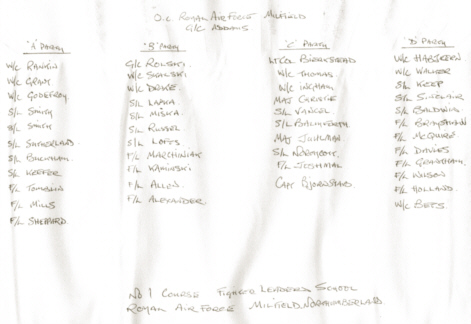 O.C. ROYAL AIR FORCE MILFIELD
G/C ADAMS
'A' PARTY
W/C RANKIN
W/C GRANT
W/C GODEFROY.
S/L SMITH
S/L SMITH
S/L SUTHERLAND
S/L BUCHANAN.
S/L KEEFER
F/L TOMBLIN
F/L MILLS
F/L SHEPPARD.
'B' PARTY
G/C ROLSKI.
W/C SKALSKI
W/C DRAKE.
S/L LAPKA.
S/L MISKA.
S/L RUSSEL
S/L LOFTS
F/L MARCHINIAK
F/L KAMINSKI
F/L ALLEN.
F/L ALEXANDER.
'C' PARTY
LT COL BIRKSTEAD
W/C THOMAS.
W/C INGHAM.
MAJ CHRISTIE
S/L VANCEL.
S/L
MAJ
S/L
F/L
CAPT BJORNSTAD.
'D' PARTY
W/C HABJOERN
W/C WALKER
S/L KEEP
S/L SINCLAIR
S/L BALDWIN
F/L
F/L McQUIRE.
F/L DAVIES
F/L GRANTHAM.
F/L WILSON
F/L HOLLAND.
W/C BETTS.
NO 1 COURSE FIGHTER LEADERS SCHOOL
ROYAL AIR FORCE MILFIELD NORTHUMBERLAND.